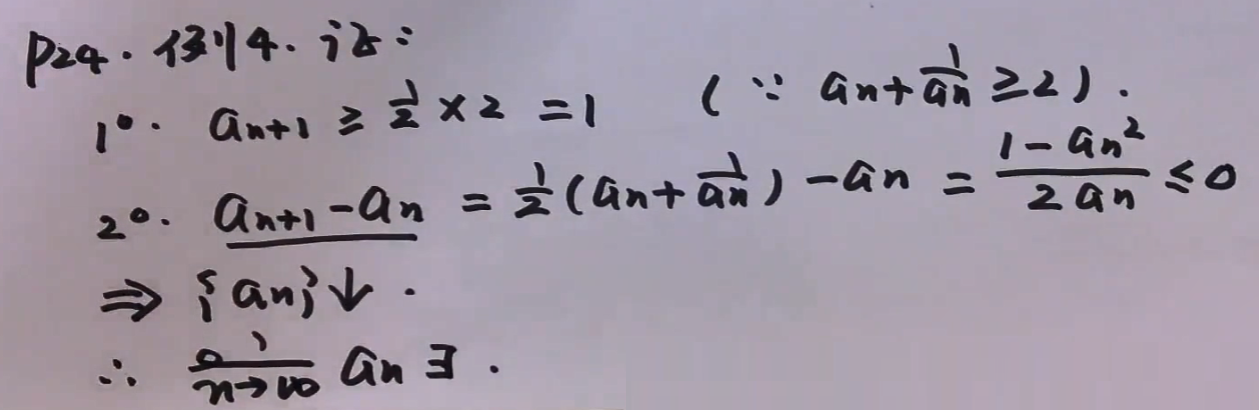 P24. 例4. 证:
1°. aₙ₊₁ ≥ 1/2 × 2 = 1 (∵ aₙ + 1/aₙ ≥ 2).
2°. aₙ₊₁ - aₙ = 1/2 (aₙ + 1/aₙ) - aₙ = (1 - aₙ²)/(2aₙ) ≤ 0
⇒ {aₙ}↓.
∴ n→∞ aₙ ∃.